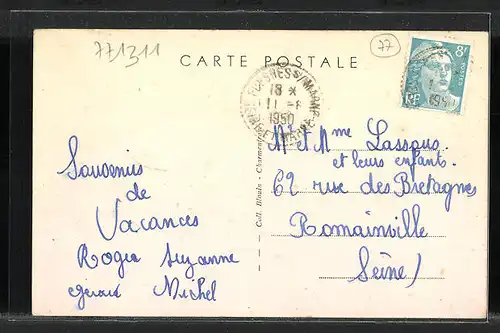 771311
CARTE POSTALE
77
8F
RF
18 X
11 - 8
1950
Mr et Mme Lassous
et leurs enfants
62 rue des Bretagnes
Romainville
Seine)
Souvenirs
de
Vacances
Roger Suzanne
Gérard Michel
Coll. Blouin - Charmentray